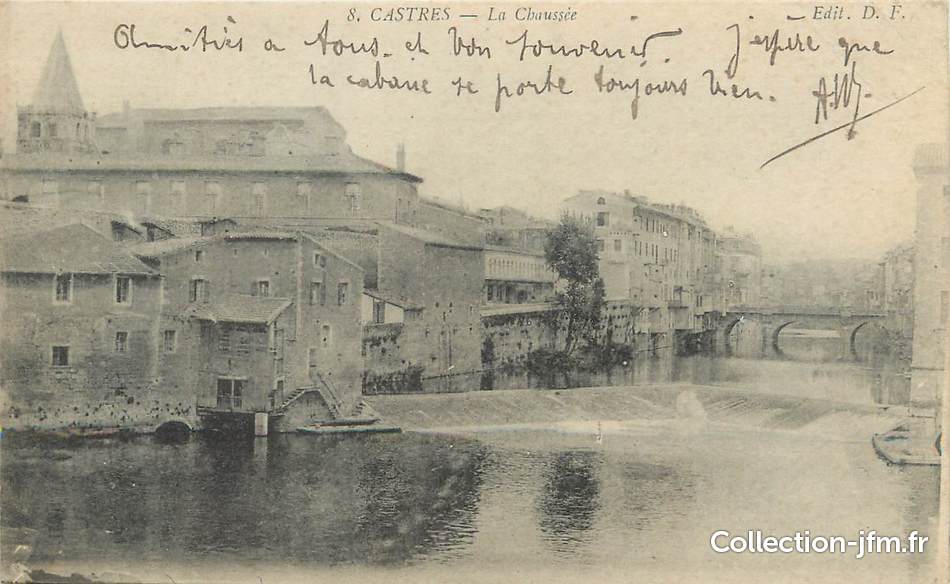 8. CASTRES — La Chaussée
Edit. D. F.
Amitiés a tous. et bon souvenir. J'espére que
la cabane se porte toujours bien.
Collection-jfm.fr